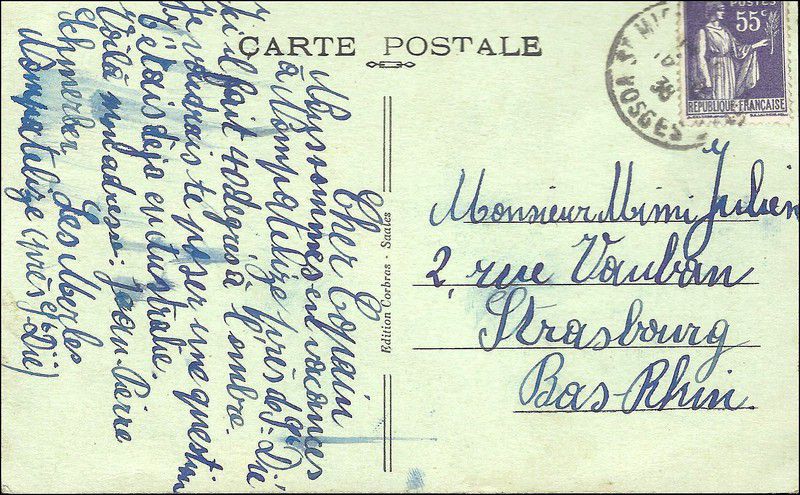 CARTE POSTALE
POSTES
55c
REPUBLIQUE-FRANÇAISE
ST MIC
38
VOSGES
Cher Copain
sommes en vacances
à Nompatelize près de St-Dié
Ici il fait 40 degrés à l'ombre.
Je voudrais te poser une question
étais déja en Australie.
Voilà mon adresse: Jean-Pierre
Schmerber Les
Nompatelize (près St-Dié)
Edition Corbras - Saales
Monsieur Mimi Julien
2, rue Vauban
Strasbourg
Bas-Rhin.